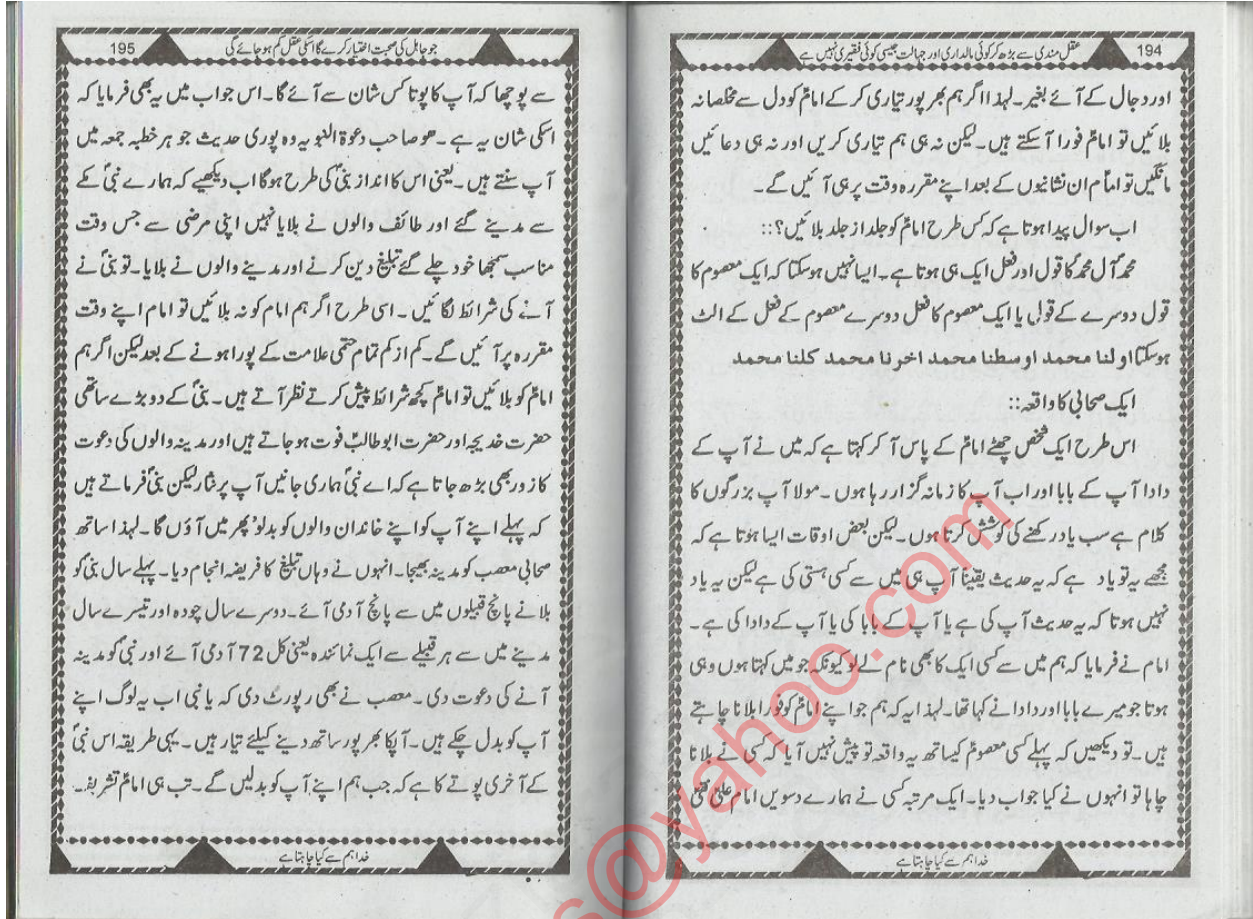 194
عقل مندی سے بڑھ کر کوئی مالداری اور جہالت جیسی کوئی فقیری نہیں ہے
اور دجال کے آئے بغیر۔ لہذا اگر ہم بھر پور تیاری کر کے امامؑ کو دل سے مخلصانہ
بلائیں تو امامؑ فورا آ سکتے ہیں۔ لیکن نہ ہی ہم تیاری کریں اور نہ ہی دعائیں
مانگیں تو امامؑ ان نشانیوں کے بعد اپنے مقررہ وقت پر ہی آئیں گے۔
اب سوال پیدا ہوتا ہے کہ کس طرح امامؑ کو جلد از جلد بلائیں؟::
محمدؐ آل محمدؐ کا قول اور فعل ایک ہی ہوتا ہے۔ ایسا نہیں ہو سکتا کہ ایک معصوم کا
قول دوسرے کے قول یا ایک معصوم کا فعل دوسرے معصوم کے فعل کے الٹ
ہو سکتا اولنا محمد اوسطنا محمد اخرنا محمد کلنا محمد
ایک صحابی کا واقعہ::
اس طرح ایک شخص چھٹے امامؑ کے پاس آ کر کہتا ہے کہ میں نے آپ کے
دادا آپ کے بابا اور اب آپ کا زمانہ گزار رہا ہوں۔ مولا آپ بزرگوں کا
کلام ہے سب یاد رکھنے کی کوشش کرتا ہوں۔ لیکن بعض اوقات ایسا ہوتا ہے کہ
مجھے یہ تو یاد ہے کہ یہ حدیث یقیناً آپ ہی میں سے کسی ہستی کی ہے لیکن یہ یاد
نہیں ہوتا کہ یہ حدیث آپ کی ہے یا آپ کے بابا کی یا آپ کے دادا کی ہے۔
امام نے فرمایا کہ ہم میں سے کسی ایک کا بھی نام لے لو کیونکہ جو میں کہتا ہوں وہی
ہوتا جو میرے بابا اور دادا نے کہا تھا۔ لہذا یہ کہ ہم جو اپنے امامؑ کو فورا بلانا چاہتے
ہیں۔ تو دیکھیں کہ پہلے کسی معصومؑ کیساتھ یہ واقعہ تو پیش نہیں آیا کہ کسی نے بلانا
چاہا تو انہوں نے کیا جواب دیا۔ ایک مرتبہ کسی نے ہمارے دسویں امام علی نقیؑ
خدا ہم سے کیا چاہتا ہے
195
جو جاہل کی صحبت اختیار کرے گا اسکی عقل کم ہو جائے گی
سے پوچھا کہ آپ کا پوتا کس شان سے آئے گا۔ اس جواب میں یہ بھی فرمایا کہ
اسکی شان یہ ہے۔ ھو صاحب دعوۃ النبویہ وہ پوری حدیث جو ہر خطبہ جمعہ میں
آپ سنتے ہیں۔ یعنی اس کا انداز نبیؐ کی طرح ہوگا اب دیکھیے کہ ہمارے نبیؐ کے
سے مدینے گئے اور طائف والوں نے بلایا نہیں اپنی مرضی سے جس وقت
مناسب سمجھا خود چلے گئے تبلیغ دین کرنے اور مدینے والوں نے بلایا۔ تو نبیؐ نے
آنے کی شرائط لگائیں۔ اسی طرح اگر ہم امام کو نہ بلائیں تو امام اپنے وقت
مقررہ پر آئیں گے۔ کم از کم تمام حتمی علامت کے پورا ہونے کے بعد لیکن اگر ہم
امامؑ کو بلائیں تو امامؑ کچھ شرائط پیش کرتے نظر آتے ہیں۔ نبیؐ کے دو بڑے ساتھی
حضرت خدیجہ اور حضرت ابو طالبؑ فوت ہو جاتے ہیں اور مدینہ والوں کی دعوت
کا زور بھی بڑھ جاتا ہے کہ اے نبیؐ ہماری جانیں آپ پر نثار لیکن نبیؐ فرماتے ہیں
کہ پہلے اپنے آپ کو اپنے خاندان والوں کو بدلو پھر میں آؤں گا۔ لہذا ساتھ
صحابی معصب کو مدینہ بھیجا۔ انہوں نے وہاں تبلیغ کا فریضہ انجام دیا۔ پہلے سال نبیؐ کو
بلانے پانچ قبیلوں میں سے پانچ آدمی آئے۔ دوسرے سال چودہ اور تیسرے سال
مدینے میں سے ہر قبیلے سے ایک نمائندہ یعنی کل 72 آدمی آئے اور نبی کو مدینہ
آنے کی دعوت دی۔ معصب نے بھی رپورٹ دی کہ یا نبی اب یہ لوگ اپنے
آپ کو بدل چکے ہیں۔ آپکا بھر پور ساتھ دینے کیلئے تیار ہیں۔ یہی طریقہ اس نبیؐ
کے آخری پوتے کا ہے کہ جب ہم اپنے آپ کو بدلیں گے۔ تب ہی امامؑ تشریف
خدا ہم سے کیا چاہتا ہے
s@yahoo.com